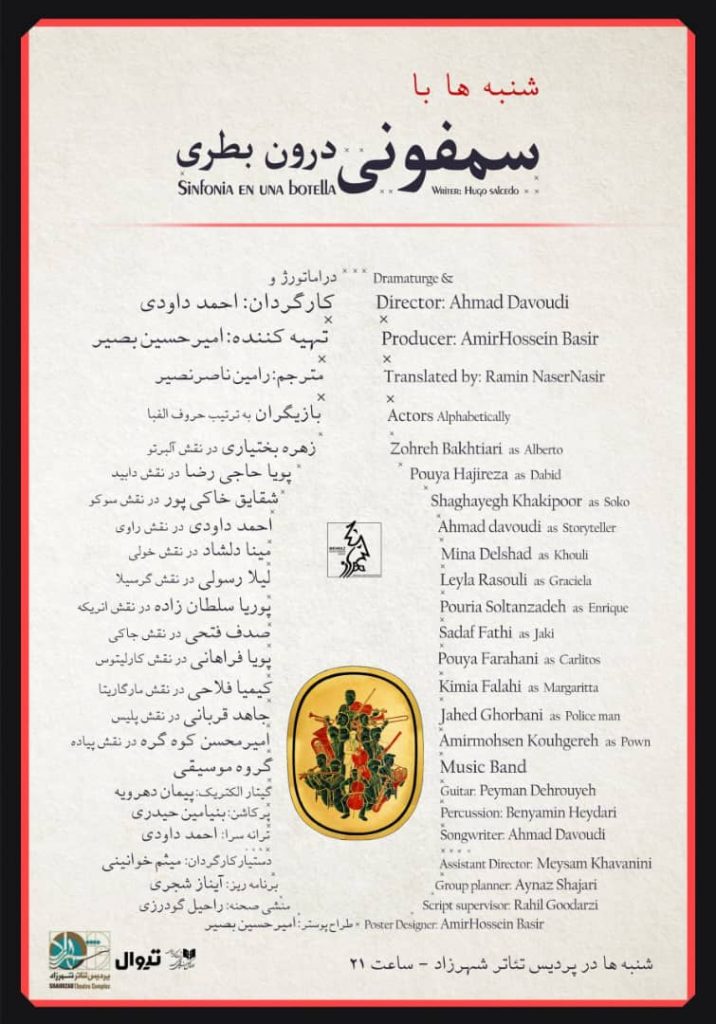 شنبه ها با
سمفونی درون بطری
Sinfonia en una botella
Writer: Hugo salcedo
دراماتورژ و
Dramaturge &
کارگردان: احمد داودی
Director: Ahmad Davoudi
تهیه کننده: امیرحسین بصیر
Producer: AmirHossein Basir
مترجم: رامین ناصرنصیر
Translated by: Ramin NaserNasir
بازیگران به ترتیب حروف الفبا
Actors Alphabetically
زهره بختیاری در نقش آلبرتو
Zohreh Bakhtiari as Alberto
پویا حاجی رضا در نقش دابید
Pouya Hajireza as Dabid
شقایق خاکی پور در نقش سوکو
Shaghayegh Khakipoor as Soko
احمد داودی در نقش راوی
Ahmad davoudi as Storyteller
مینا دلشاد در نقش خولی
Mina Delshad as Khouli
لیلا رسولی در نقش گرسیلا
Leyla Rasouli as Graciela
پوریا سلطان زاده در نقش انریکه
Pouria Soltanzadeh as Enrique
صدف فتحی در نقش جاکی
Sadaf Fathi as Jaki
پویا فراهانی در نقش کارلیتوس
Pouya Farahani as Carlitos
کیمیا فلاحی در نقش مارگاریتا
Kimia Falahi as Margaritta
جاهد قربانی در نقش پلیس
Jahed Ghorbani as Police man
امیرمحسن کوه گره در نقش پیاده
Amirmohsen Kouhgereh as Pown
گروه موسیقی
Music Band
گیتار الکتریک: پیمان دهرویه
Guitar: Peyman Dehrouyeh
پرکاشن: بنیامین حیدری
Percussion: Benyamin Heydari
ترانه سرا: احمد داودی
Songwriter: Ahmad Davoudi
دستیار کارگردان: میثم خوانینی
Assistant Director: Meysam Khavanini
برنامه ریز: آیناز شجری
Group planner: Aynaz Shajari
منشی صحنه: راحیل گودرزی
Script supervisor: Rahil Goodarzi
طراح پوستر: امیرحسین بصیر
Poster Designer: AmirHossein Basir
شنبه ها در پردیس تئاتر شهرزاد - ساعت ۲۱
تیوال
پردیس تئاتر شهرزاد
SHAHRZAD Theatre Complex